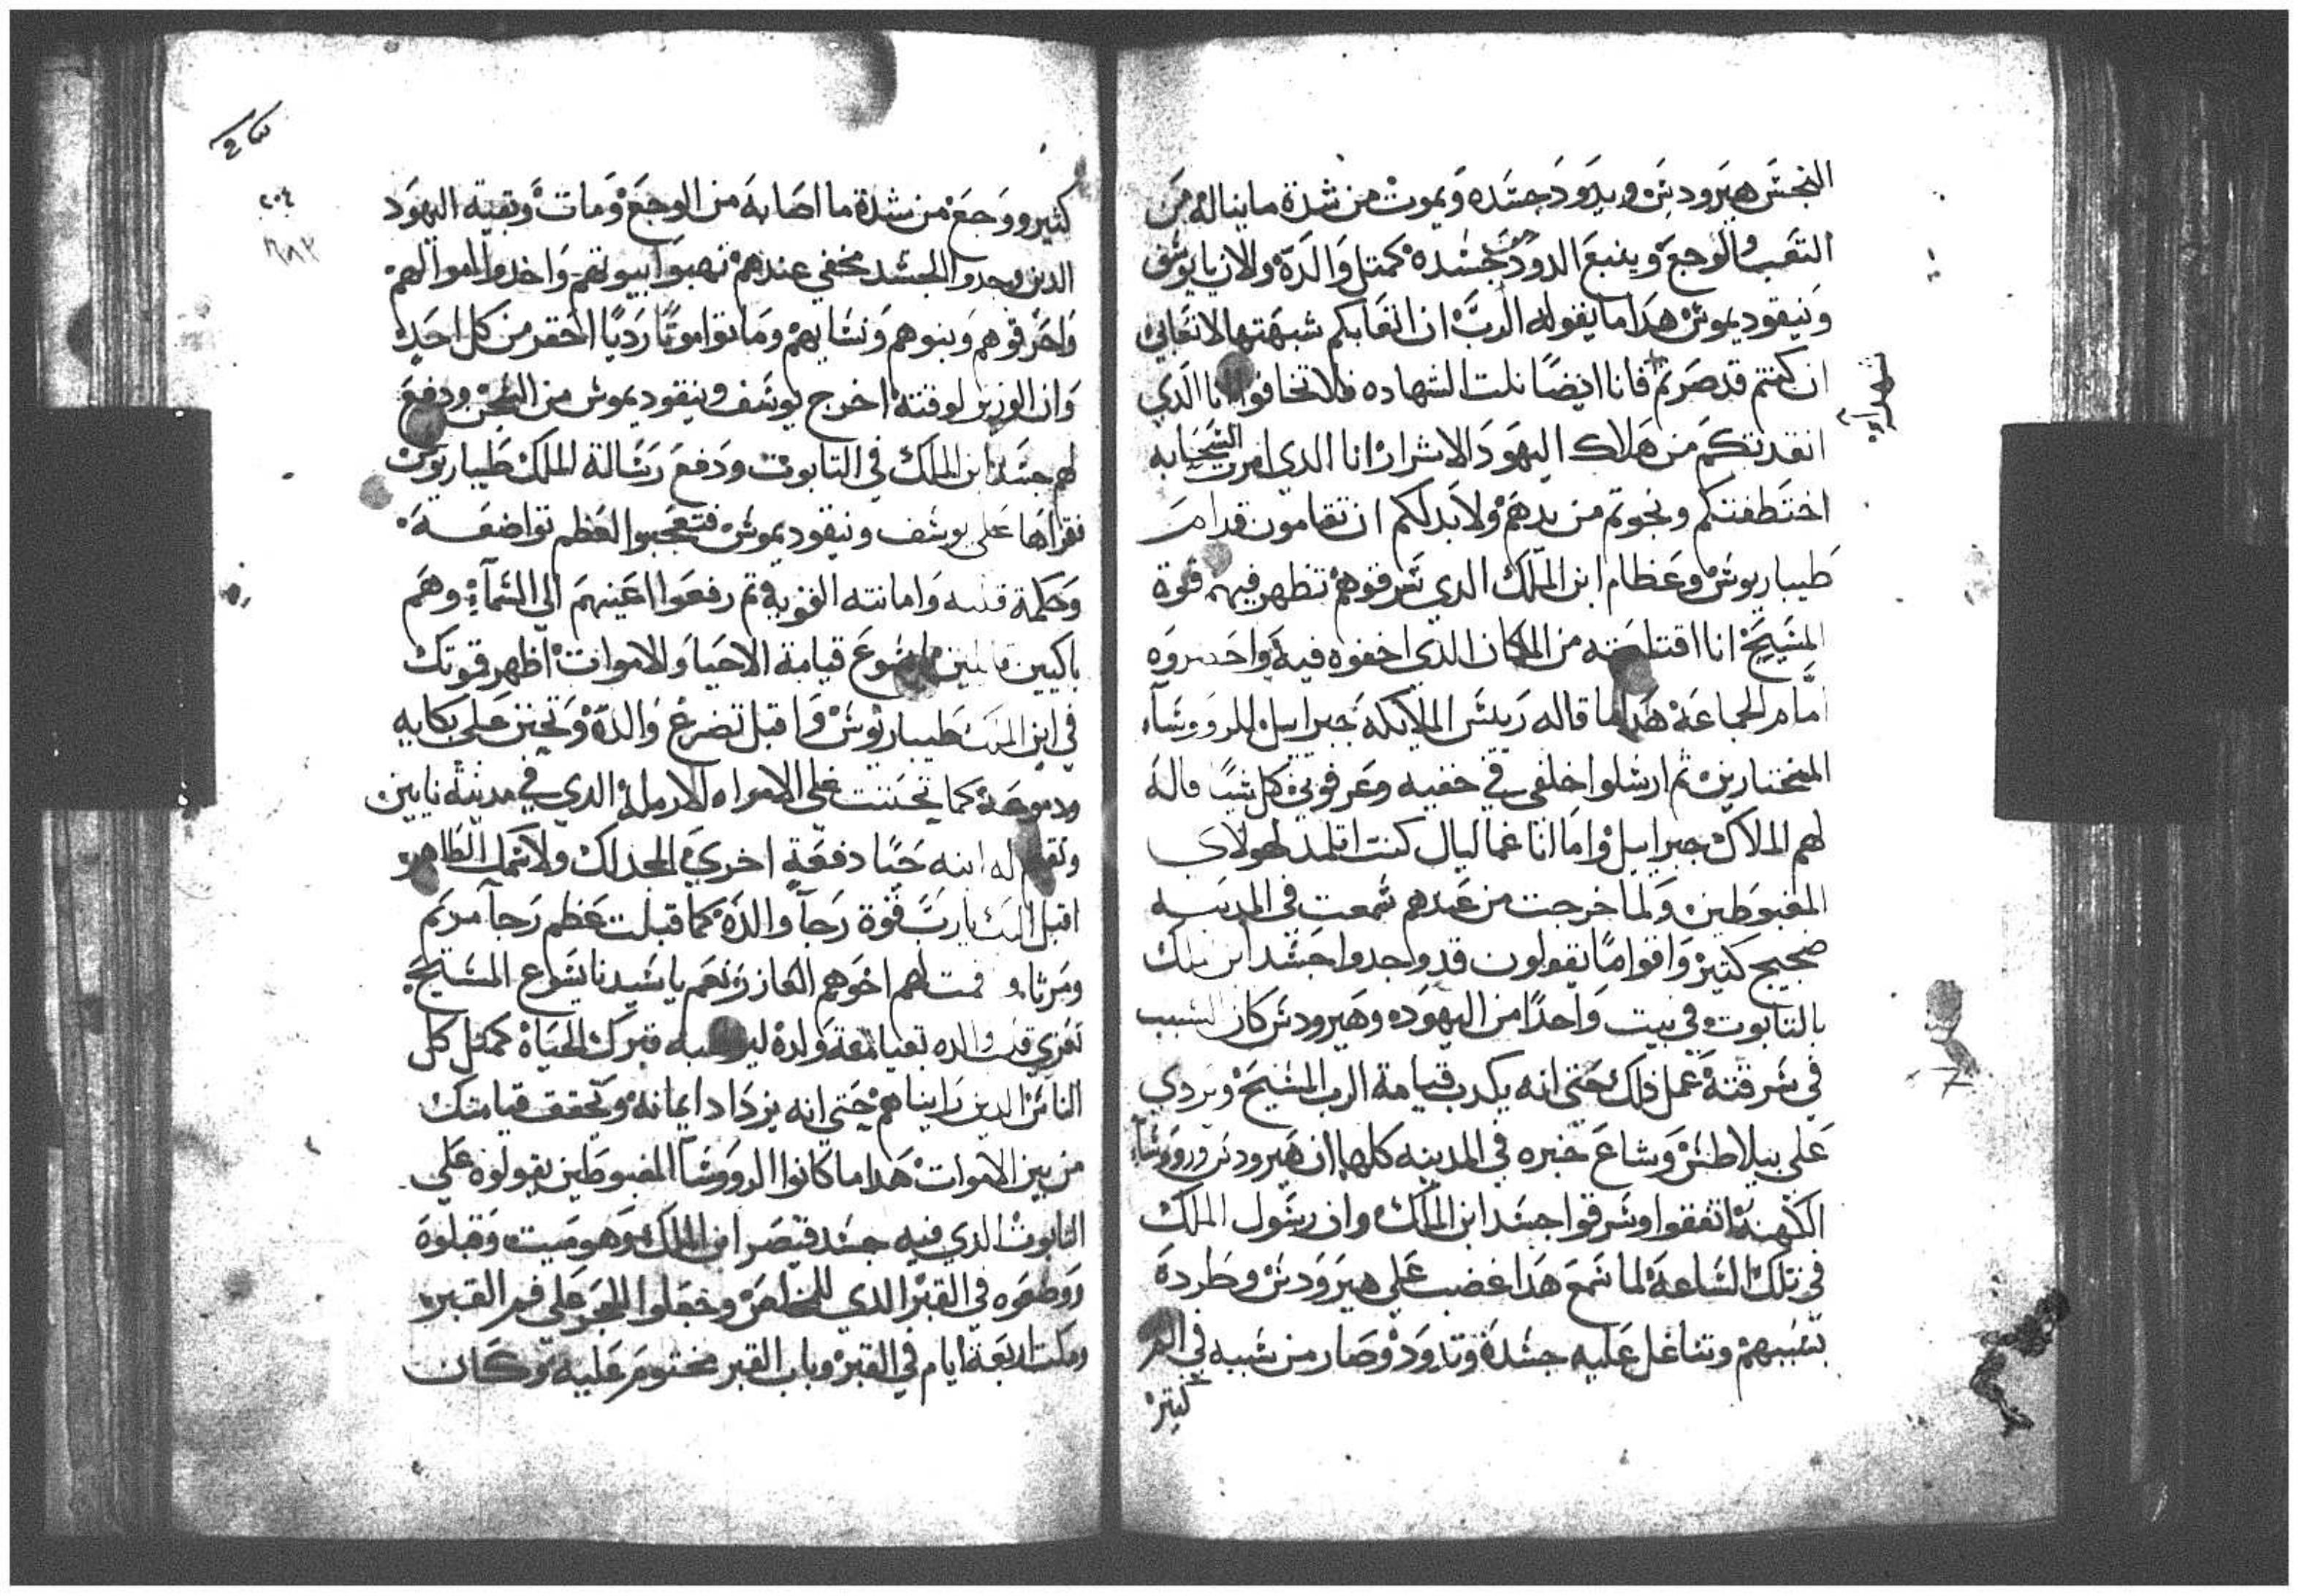 النجس هيرودس ويدود جسده ويموت من شدة ما يناله من
التعب والوجع وينبع الدود من جسده كمتل والدة والان يا يوسف
ونيقوديموس هدا ما يقوله الرب ان اتعابكم شبهتها لاتعابي
ان كنتم قد صرتم فانا ايضا نلت الشهاده فلا تخافوا انا الدي
انقدتكم من هلاك اليهود الاشرار انا الدي امرت السحابه
اختطفتكم ونجوتم من يدهم ولا بد لكم ان تقامون قدام
طيباريوس وعظام ابن الملك الدي سرقوهم تظهر فيهم قوة
المسيح انا اقتلعته من المكان الدي اخفوه فيه واحضروه
امام الجماعة هدا ما قاله ريس الملايكه جبراييل للرووسآء
المختارين تم ارسلوا خلفي في خفيه وعرفوني كل شيا قاله
لهم الملاك جبراييل واما انا غماليال كنت اتلمد لهولاي
المغبوطين ولما خرجت من عندهم سمعت في المدينه
ضجيج كتير واقواما يقولون قد واجدوا جسد ابن الملك
بالتابوت في بيت واحدا من اليهود وهيرودس كان السبب
في سرقته عمل دلك حتي انه يكدب قيامة الرب المسيح ويردي
علي بيلاطس وشاع خبره في المدينه كلها ان هيرودس ورووسآء
الكهنة اتفقوا وسرقوا جسد ابن الملك وان رسول الملك
في تلك الساعة لما سمع هدا غضب علي هيرودس وطرده
بسببهم وتتاغل عليه جسده وتدود وصار من شببه في الم
كتير
كتير ووجع من شدة ما اصابه من الوجع ومات وبقية اليهود
الدين وجدوا الجسد مخفي عندهم نهبوا بيوتهم واخدوا اموالهم
واحرقوهم وبنوهم ونسايهم وماتوا موتا رديا احقر من كل احد
وان الوزير لوقته اخرج يوسف ونيقوديموس من السجن ودفع
لهم جسد ابن الملك في التابوت ودفع رسالة الملك طيباريوس
فقراها علي يوسف ونيقوديموس فتعجبوا لعظم تواضعه
وحكمة قلبه وامانته القويه تم رفعوا اعينهم الي السمآء وهم
باكيين قايلين يا يسوع قيامة الاحيا والاموات اظهر قوتك
في ابن الملك طيباريوس واقبل تضرع والدة وتحنن علي بكايه
ودموعة كما تحننت علي الامراه الارملة الدي في مدينة نايين
وتقيم له ابنه حيا دفعة اخري لمجدك ولاسمك الطاهر
اقبل اليك يارب قوة رجآ والدة كما قبلت عظم رجآ مريم
ومرتا وقمت لهم اخوهم العازر نعم يا سيدنا يسوع المسيح
تعزي قلب والده بقيامة ولدة ليوهبه قبرك الحياة كمتل كل
الناس الدين رايناهم حتي انه يزداد ايمانه وتحقق قيامتك
من بين الاموات هدا ما كانوا الرووسآ المغبوطين يقولوه علي
التابوت الدي فيه جسد قيصر ابن الملك وهو ميت وقبلوه
ووضعوه في القبر الدي للمخلص وجعلوا الحجر علي فم القبر
ومكت اربعة ايام في القبر وباب القبر مختوم عليه وكان
٢٠٤